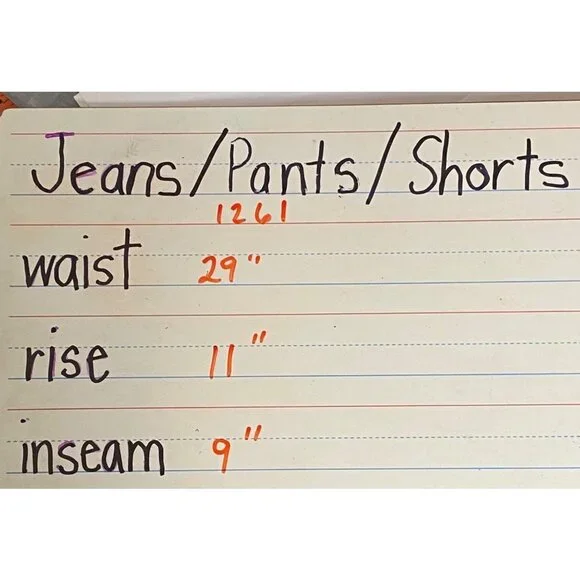 Jeans/Pants/Shorts
1261
waist 29"
rise 11"
inseam 9"